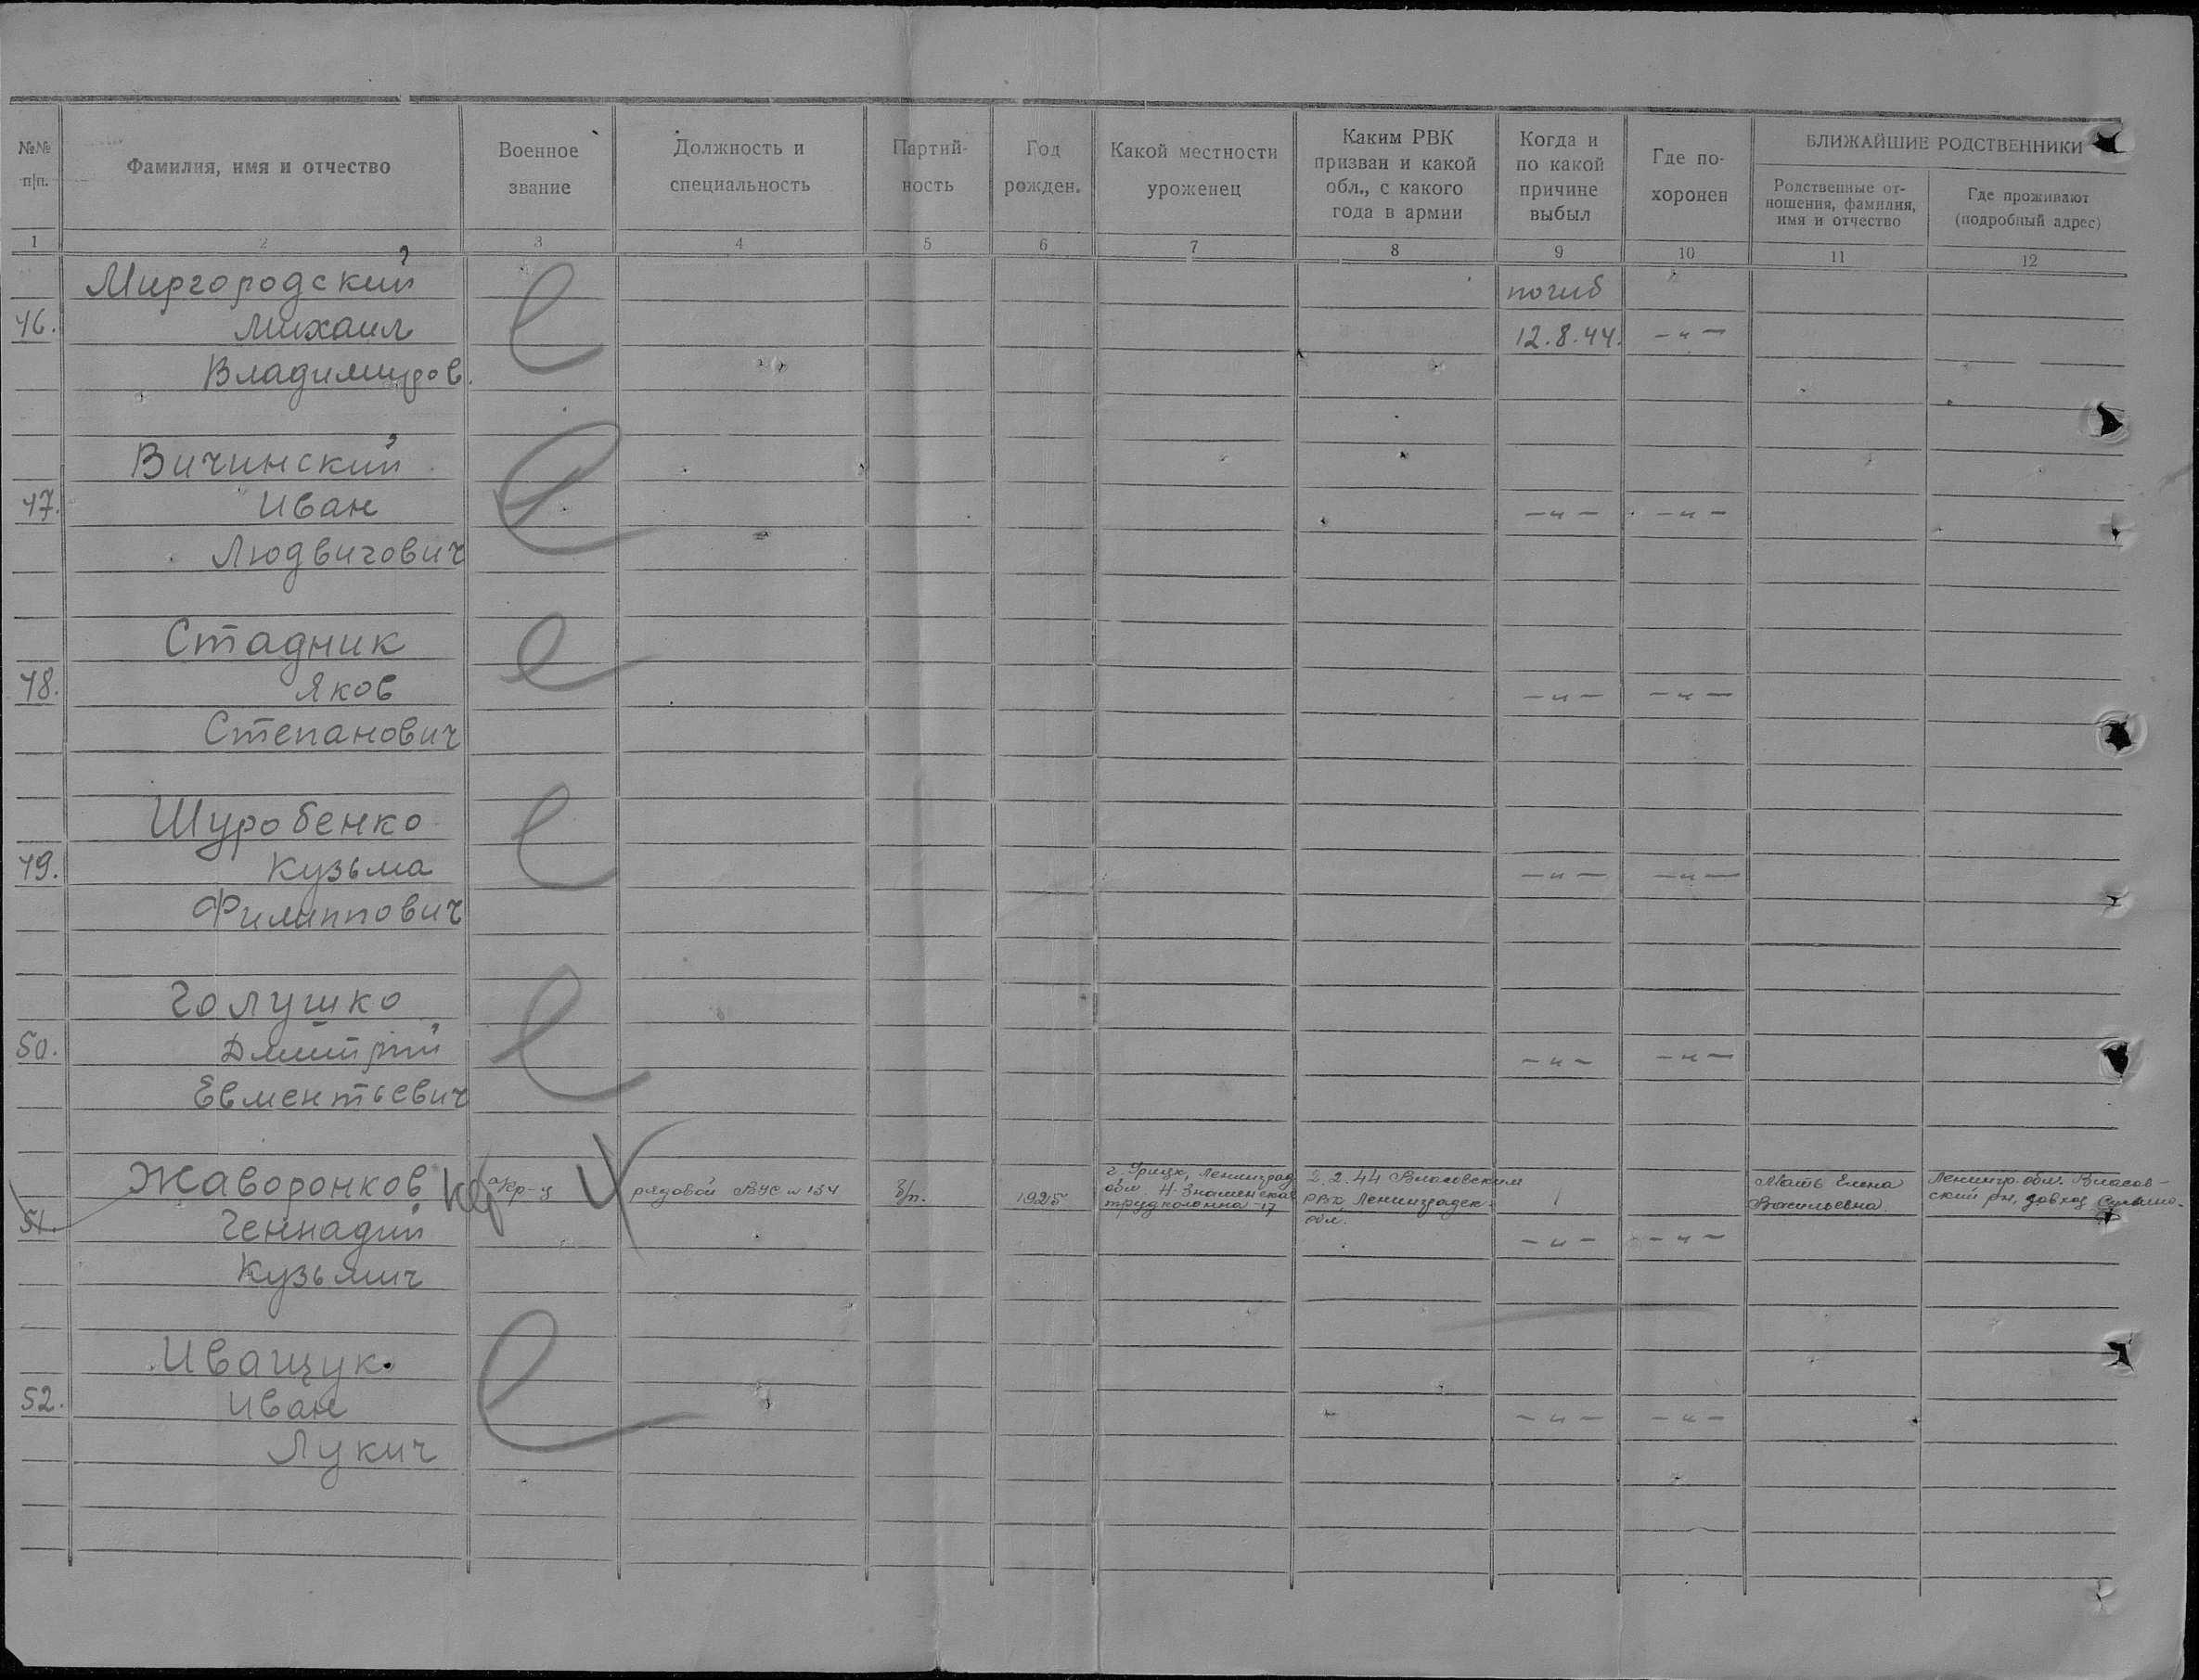 №№ п/п.
Фамилия, имя и отчество
Военное звание
Должность и специальность
Партий-ность
Год рожден.
Какой местности уроженец
Каким РВК призван и какой обл., с какого года в армии
Когда и по какой причине выбыл
Где по-хоронен
БЛИЖАЙШИЕ РОДСТВЕННИКИ
Родственные от-ношения, фамилия, имя и отчество
Где проживают (подробный адрес)
1 2 3 4 5 6 7 8 9 10 11 12
Миргородский погиб
46. Михаил 12.8.44. -"-
Владимиров.
Вичинский
47. Иван -"- -"-
Людвигович
Стадник
48. Яков -"- -"-
Степанович
Шуробенко
49. Кузьма -"- -"-
Филиппович
Голушко
50. Дмитрий -"- -"-
Евментьевич
Жаворонков кр-ц рядовой ВУС № 134 б/п. 1925
г. Урицк, Ленинград
обл. Н-Знаменская
трудколонна-17
2.2.44 Власовским
РВК, Ленинградск.
обл.
Мать Елена
Васильевна
Ленингр. обл. Власов-
ский рн,
51. Геннадий -"- -"-
Кузьмич
Иващук.
52. Иван -"- -"-
Лукич